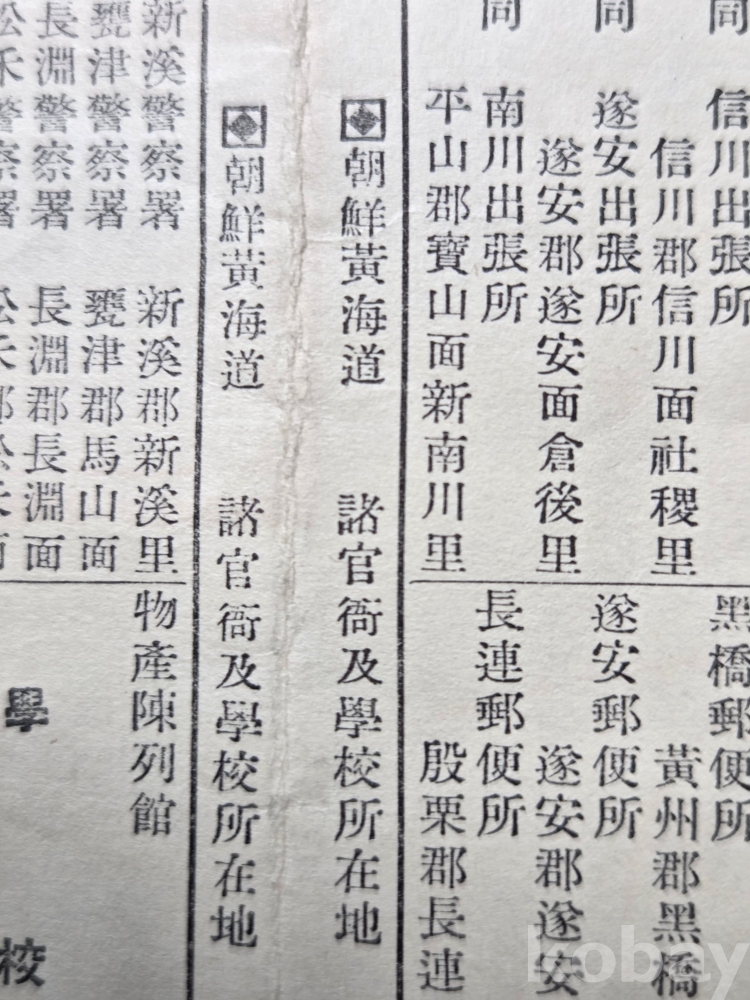 同 信川出張所
信川郡信川面社稷里
同 遂安出張所
遂安郡遂安面倉後里
同 南川出張所
平山郡寶山面新南川里
黑橋郵便所
黃州郡黑橋
遂安郵便所
遂安郡遂安
長連郵便所
殷栗郡長連
朝鮮黃海道 諸官衙及學校所在地
朝鮮黃海道 諸官衙及學校所在地
新溪警察署 新溪郡新溪里
甕津警察署 甕津郡馬山面
長淵警察署 長淵郡長淵面
物產陳列館
學 校
kobay